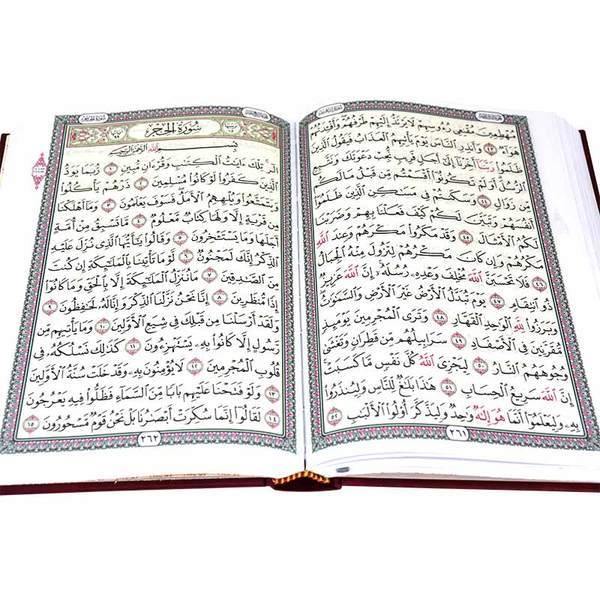 مُهْطِعِينَ مُقْنِعِى رُءُوسِهِمْ لَا يَرْتَدُّ إِلَيْهِمْ طَرْفُهُمْ وَأَفْـِٔدَتُهُمْ
هَوَآءٌ ٤٣ وَأَنذِرِ ٱلنَّاسَ يَوْمَ يَأْتِيهِمُ ٱلْعَذَابُ فَيَقُولُ ٱلَّذِينَ
ظَلَمُوا۟ رَبَّنَآ أَخِّرْنَآ إِلَىٰٓ أَجَلٍ قَرِيبٍ نُّجِبْ دَعْوَتَكَ وَنَتَّبِعِ
ٱلرُّسُلَ أَوَلَمْ تَكُونُوٓا۟ أَقْسَمْتُم مِّن قَبْلُ مَا لَكُم
مِّن زَوَالٍ ٤٤ وَسَكَنتُمْ فِى مَسَٰكِنِ ٱلَّذِينَ ظَلَمُوٓا۟
أَنفُسَهُمْ وَتَبَيَّنَ لَكُمْ كَيْفَ فَعَلْنَا بِهِمْ وَضَرَبْنَا
لَكُمُ ٱلْأَمْثَالَ ٤٥ وَقَدْ مَكَرُوا۟ مَكْرَهُمْ وَعِندَ ٱللَّهِ
مَكْرُهُمْ وَإِن كَانَ مَكْرُهُمْ لِتَزُولَ مِنْهُ ٱلْجِبَالُ
٤٦ فَلَا تَحْسَبَنَّ ٱللَّهَ مُخْلِفَ وَعْدِهِۦ رُسُلَهُۥٓ إِنَّ ٱللَّهَ عَزِيزٌ
ذُو ٱنتِقَامٍ ٤٧ يَوْمَ تُبَدَّلُ ٱلْأَرْضُ غَيْرَ ٱلْأَرْضِ وَٱلسَّمَٰوَٰتُ
وَبَرَزُوا۟ لِلَّهِ ٱلْوَٰحِدِ ٱلْقَهَّارِ ٤٨ وَتَرَى ٱلْمُجْرِمِينَ يَوْمَئِذٍ
مُّقَرَّنِينَ فِى ٱلْأَصْفَادِ ٤٩ سَرَابِيلُهُم مِّن قَطِرَانٍ وَتَغْشَىٰ
وُجُوهَهُمُ ٱلنَّارُ ٥٠ لِيَجْزِىَ ٱللَّهُ كُلَّ نَفْسٍ مَّا كَسَبَتْ
إِنَّ ٱللَّهَ سَرِيعُ ٱلْحِسَابِ ٥١ هَٰذَا بَلَٰغٌ لِّلنَّاسِ وَلِيُنذَرُوا۟
بِهِۦ وَلِيَعْلَمُوٓا۟ أَنَّمَا هُوَ إِلَٰهٌ وَٰحِدٌ وَلِيَذَّكَّرَ أُو۟لُوا۟ ٱلْأَلْبَٰبِ ٥٢
٢٦١
سُورَةُ الحِجْرِ
بِسْمِ ٱللَّهِ ٱلرَّحْمَٰنِ ٱلرَّحِيمِ
الٓر تِلْكَ ءَايَٰتُ ٱلْكِتَٰبِ وَقُرْءَانٍ مُّبِينٍ ١ رُّبَمَا يَوَدُّ
ٱلَّذِينَ كَفَرُوا۟ لَوْ كَانُوا۟ مُسْلِمِينَ ٢ ذَرْهُمْ يَأْكُلُوا۟
وَيَتَمَتَّعُوا۟ وَيُلْهِهِمُ ٱلْأَمَلُ فَسَوْفَ يَعْلَمُونَ ٣ وَمَآ أَهْلَكْنَا
مِن قَرْيَةٍ إِلَّا وَلَهَا كِتَابٌ مَّعْلُومٌ ٤ مَّا تَسْبِقُ مِنْ أُمَّةٍ
أَجَلَهَا وَمَا يَسْتَـْٔخِرُونَ ٥ وَقَالُوا۟ يَٰٓأَيُّهَا ٱلَّذِى نُزِّلَ عَلَيْهِ
ٱلذِّكْرُ إِنَّكَ لَمَجْنُونٌ ٦ لَّوْ مَا تَأْتِينَا بِٱلْمَلَٰٓئِكَةِ إِن كُنتَ
مِنَ ٱلصَّٰدِقِينَ ٧ مَا نُنَزِّلُ ٱلْمَلَٰٓئِكَةَ إِلَّا بِٱلْحَقِّ وَمَا كَانُوٓا۟
إِذًا مُّنظَرِينَ ٨ إِنَّا نَحْنُ نَزَّلْنَا ٱلذِّكْرَ وَإِنَّا لَهُۥ لَحَٰفِظُونَ ٩
وَلَقَدْ أَرْسَلْنَا مِن قَبْلِكَ فِى شِيَعِ ٱلْأَوَّلِينَ ١٠ وَمَا يَأْتِيهِم مِّن
رَّسُولٍ إِلَّا كَانُوا۟ بِهِۦ يَسْتَهْزِءُونَ ١١ كَذَٰلِكَ نَسْلُكُهُۥ فِى
قُلُوبِ ٱلْمُجْرِمِينَ ١٢ لَا يُؤْمِنُونَ بِهِۦ وَقَدْ خَلَتْ سُنَّةُ ٱلْأَوَّلِينَ
١٣ وَلَوْ فَتَحْنَا عَلَيْهِم بَابًا مِّنَ ٱلسَّمَآءِ فَظَلُّوا۟ فِيهِ يَعْرُجُونَ
١٤ لَقَالُوٓا۟ إِنَّمَا سُكِّرَتْ أَبْصَٰرُنَا بَلْ نَحْنُ قَوْمٌ مَّسْحُورُونَ ١٥
٢٦٢